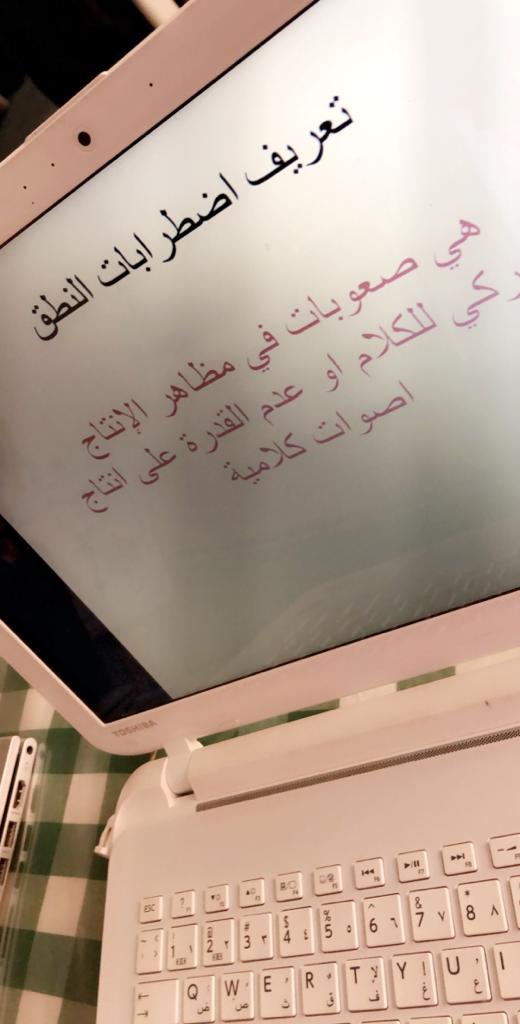 تعريف اضطرابات النطق
هي صعوبات في مظاهر الإنتاج
كي للكلام او عدم القدرة على انتاج
اصوات كلامية
TOSHIBA
ESC ? F1 F2 F3 F4 F5 F6 F7 F8
~ ! 1 ١ @ 2 ٢ # 3 ٣ $ 4 ٤ % 5 ٥ ^ 6 ٦ & 7 ٧ * 8 ٨
Q ض W ص E ث R ق T ف لإ Y غ إ U ع I